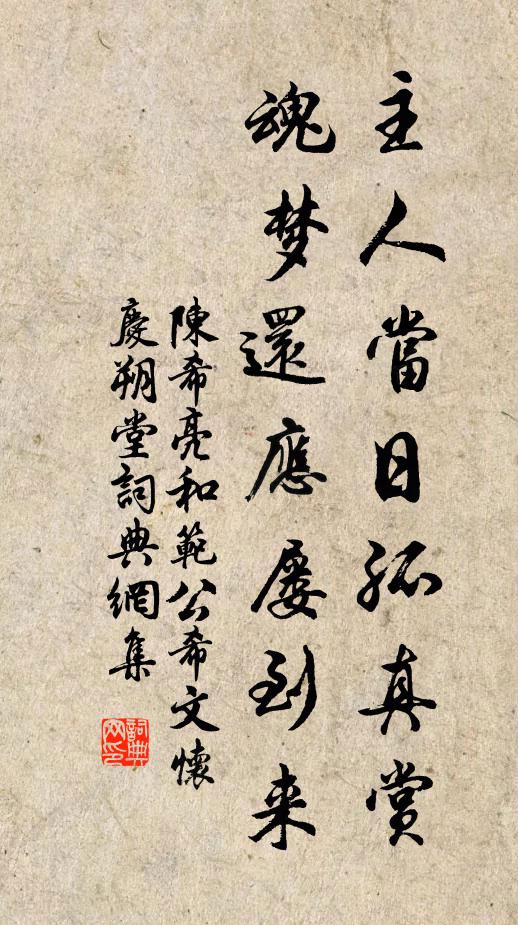 主人當日孤真賞
魂梦還應屡到来
陳希亮和範公希文懷
慶朔堂詞典網集
詞典网印